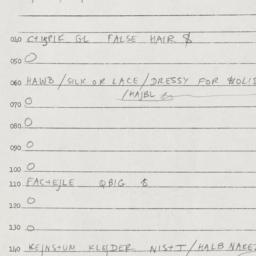 040 GL FALSE HAIR $
050 O
060 HAWB/SILK OR LACE/DRESSY FOR
/HAJBL
070 O
080 O
090 O
100 O
110 FAC+EJLE QBIG $
120 O
130 O
140 KEJNS+UM KLEJDER NIS+T/HALB